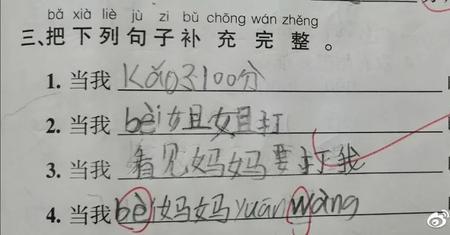 bǎ xià liè jù zi bǔ chōng wán zhěng
三、把下列句子补充完整。
1. 当我 Kǎo了100分
2. 当我 bèi姐姐打
3. 当我 看见妈妈要打我
4. 当我 bèi妈妈yuān wàng